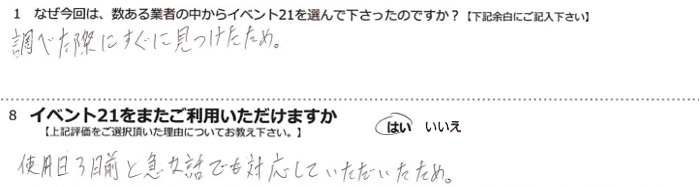 1 なぜ今回は、数ある業者の中からイベント21を選んで下さったのですか？【下記余白にご記入下さい】
調べた際にすぐに見つけたため。
8 イベント21をまたご利用いただけますか
はい いいえ
【上記評価をご選択頂いた理由についてお教え下さい。】
使用日3日前と急な話でも対応していただいたため。